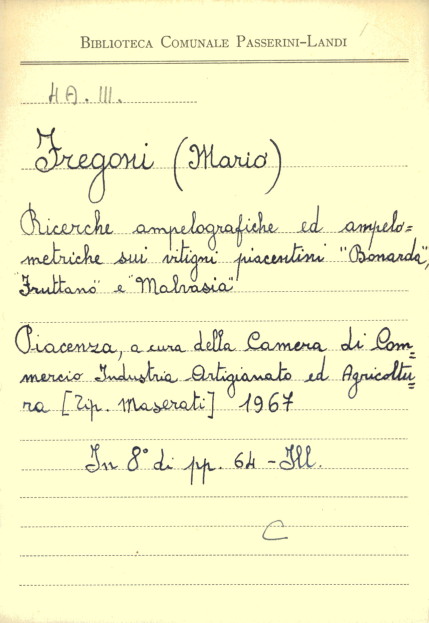 BIBLIOTECA COMUNALE PASSERINI-LANDI
4A. III.
Fregoni (Mario)
Ricerche ampelografiche ed ampelo=
metriche sui vitigni piacentini "Bonarda",
"Fruttano" e "Malvasia"
Piacenza, a cura della Camera di Com=
mercio Industria Artigianato ed Agricoltu=
ra [Tip. Maserati] 1967
In 8° di pp. 64 - Ill.
C